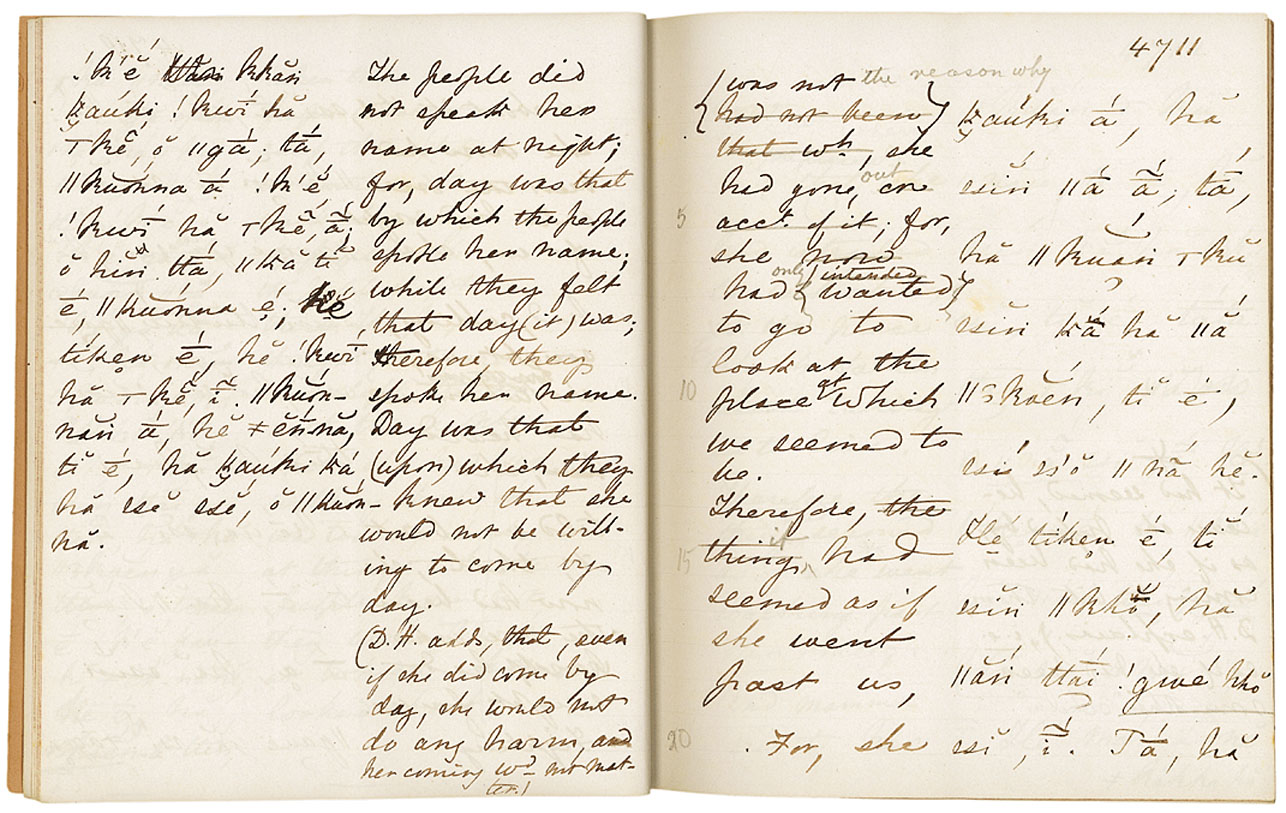 !k'é ||kăn
k̮aúki !kwī́ hă
⊤kĕ́, ŏ ||gā́; tā́,
||kuŏ́nna ā́ !k'é
!kwī́ hă ⊤kĕ́, ā̃́;
ŏ hĭń ttā́, ||kă tĭ
é, ||kuŏ́nna é;
tíken é, hĕ !kwī́
hă ⊤kĕ́, ī̃́. ||kuŏ́n-
năn ā́, hĕ ≠ĕ́n-nă,
tĭ é, hă k̮aúki ká
hă sse ssé, ŏ ||kuŏn-
nă.
The people did
not speak her
name at night;
for, day was that
by which the people
spoke her name;
while they felt
that day (it) was;
therefore, they
spoke her name.
Day was that
(upon) which they
knew that she
would not be will-
ing to come by
day.
(D.H. adds, that, even
if she did come by
day, she would not
do any harm, and
her coming wd. not mat-
ter.)
4711
was not the reason why
had not been
that wh., she
had gone, out on
5 acct. of it; for,
she now
had only intended
wanted
to go to
look at, the
10 place at which
we seemed to
be.
Therefore, the
15 thing, it had
seemed as if
she went
past us,
20 For, she
k̮aúki ā́, hă
ssĭń ||ā́ ā̃́; tā́,
hă ||kuăń ⊤kŭ
ssĭń kắ hă ||ā́
kŏĕń, tĭ é,
ssĭ́ ss'ŏ ||nắ hĕ.
Hé tíken é, tĭ
ssĭń ||khŏ, hă
||ăń ttāí !gwé khŏ
ssĭ, ī̃́. Tā́, hă